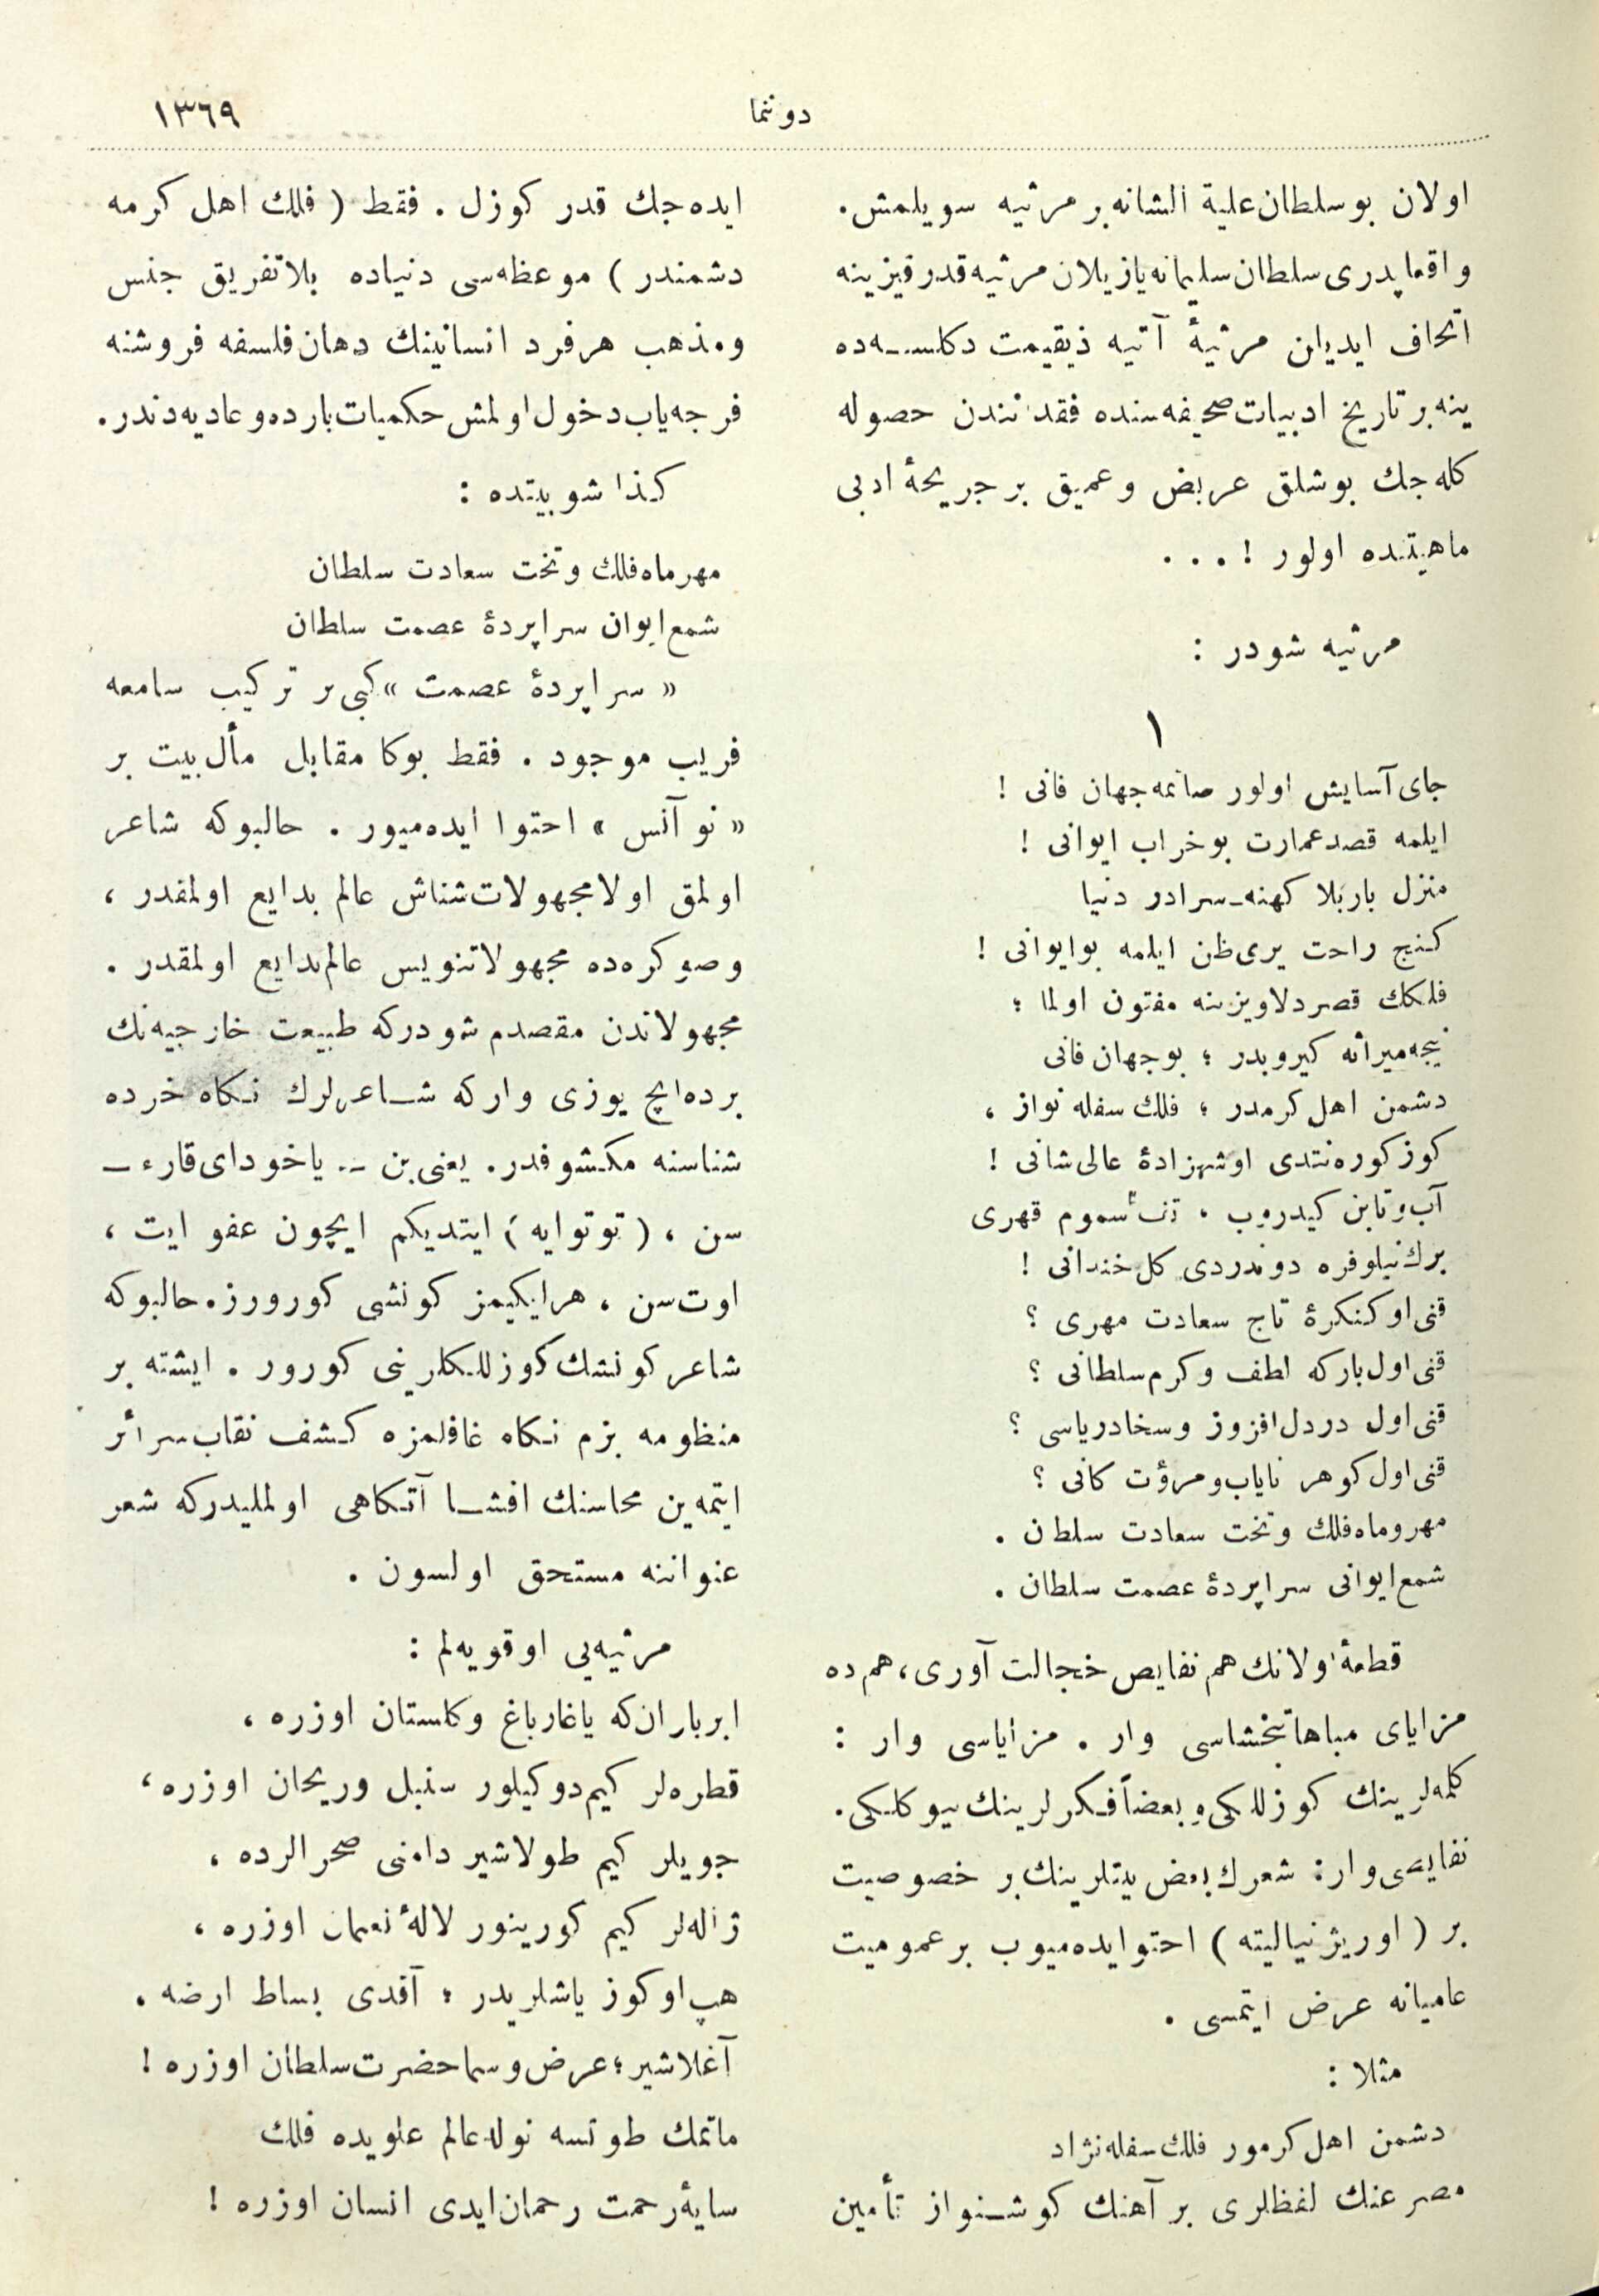 دوننما
١٣٦٩
اولان بو سلطان علیة الشانه بر مرثیه سویلمش.
واقعا پدری سلطان سلیمانه یازیلان مرثیه قدر قیزینه
اتحاف ایدیلن مرثیهٔ آتیه ذیقیمت دکلسـه‌ده
ینه بر تاریخ ادبیات صحیفه‌سنده فقدانندن حصوله
کله‌جك بوشلق عریض و عمیق بر جریحهٔ ادبی
ماهیتنده اولور !...
مرثیه شودر :
١
جای آسایش اولور صانمه جهان فانی !
ایلمه قصد عمارت بو خراب ایوانی !
منزل بار بلا کهنه‌ـسرادر دنیا
کنج راحت یری ظن ایلمه بو ایوانی !
فلکك قصر دلاویزینه مفتون اولما ؛
نیجه میراثه کیروبدر ؛ بو جهان فانی
دشمن اهل کرمدر ؛ فلك سفله نواز ،
کوز کوره نتدی او شهزادهٔ عالی شانی !
آب و تابن کیدروب ، تف سموم قهری
برك نیلوفره دوندردی کل خندانی !
قنی او کنکرهٔ تاج سعادت مهری ؟
قنی اول بارکه لطف و کرم سلطانی ؟
قنی اول در دل افروز و سخا دریاسی ؟
قنی اول کوهر نایاب و مروٴت کانی ؟
مهر و ماه فلك و تخت سعادت سلطان .
شمع ایوانی سراپردهٔ عصمت سلطان .
قطعهٔ اولانك هم نقایص خجالت آوری، هم ده
مزایای مباهاتبخشاسی وار . مزایاسی وار :
کلمه‌لرینك کوزللکی و بعضاً فکرلرینك بیوکلکی.
نقایصی وار: شعرك بعض بیتلرینك بر خصوصیت
بر ( اوریژنیالیته ) احتوا ایده‌میوب بر عمومیت
عامیانه عرض ایتمسی .
مثلا :
دشمن اهل کرمور فلك سفله نژاد
مصرعنك لفظلری بر آهنك کوشـنواز تأمین
ایده‌جك قدر کوزل . فقط ( فلك اهل کرمه
دشمندر ) موعظه‌سی دنیاده بلاتفریق جنس
ومذهب هر فرد انسانینك دهان فلسفه فروشنه
فرجه‌یاب دخول اولمش حکمیات بارده و عادیه‌دندر.
کذا شو بیتده :
مهرماه فلك و تخت سعادت سلطان
شمع ایوان سراپردهٔ عصمت سلطان
« سراپردهٔ عصمت » کبی بر ترکیب سامعه
فریب موجود . فقط بوکا مقابل مآل بیت بر
« نوآنس » احتوا ایده‌میور . حالبوکه شاعر
اولمق اولا مجهولات شناش عالم بدایع اولمقدر ،
و صوکره‌ده مجهولاتنویس عالم بدایع اولمقدر .
مجهولاتدن مقصدم شودرکه طبیعت خارجیه‌نك
بر ده ایچ یوزی وارکه شـاعرلرك نـکاه خرده
شناسنه مکشوفدر. یعنی بن ــ یاخود ای قارء ــ
سن ، ( توتوایه ) ایتدیکم ایچون عفو ایت ،
اوت سن ، هر ایکیمز کونشی کورورز. حالبوکه
شاعر کونشك کوزللکلرینی کورور . ایشته بر
منظومه بزم نـکاه غافلمزه کشف نقاب سرائر
ایتمه‌ین محاسنك افشـا آتـکاهی اولملیدرکه شعر
عنواننه مستحق اولسون .
مرثیه‌یی اوقویه‌لم :
ابر باران که یاغار باغ و کلستان اوزره ،
قطره‌لر کیم دوکیلور سنبل و ریحان اوزره ،
جویلر کیم طولاشیر دامنی صحرالرده ،
ژاله‌لر کیم کورینور لالهٔ نعمان اوزره ،
هپ او کوز یاشلریدر ؛ آقدی بساط ارضه .
آغلاشیر؛ عرض و سما حضرت سلطان اوزره !
ماتمك طوتسه نوله عالم علویده فلك
سایهٔ رحمت رحمان ایدی انسان اوزره !